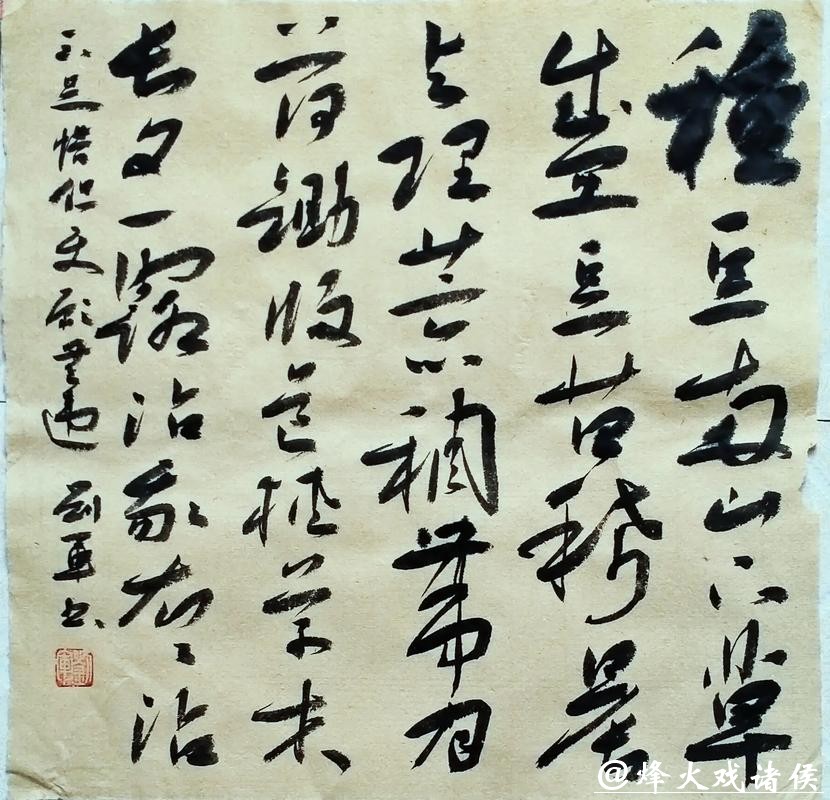 種豆南山下草
盛豆苗稀晨
興理荒穢帶月
荷鋤歸道狹草木
長夕露沾我衣〻沾
不足惜但使願無違 劉軍書
@烽火戏诸侯